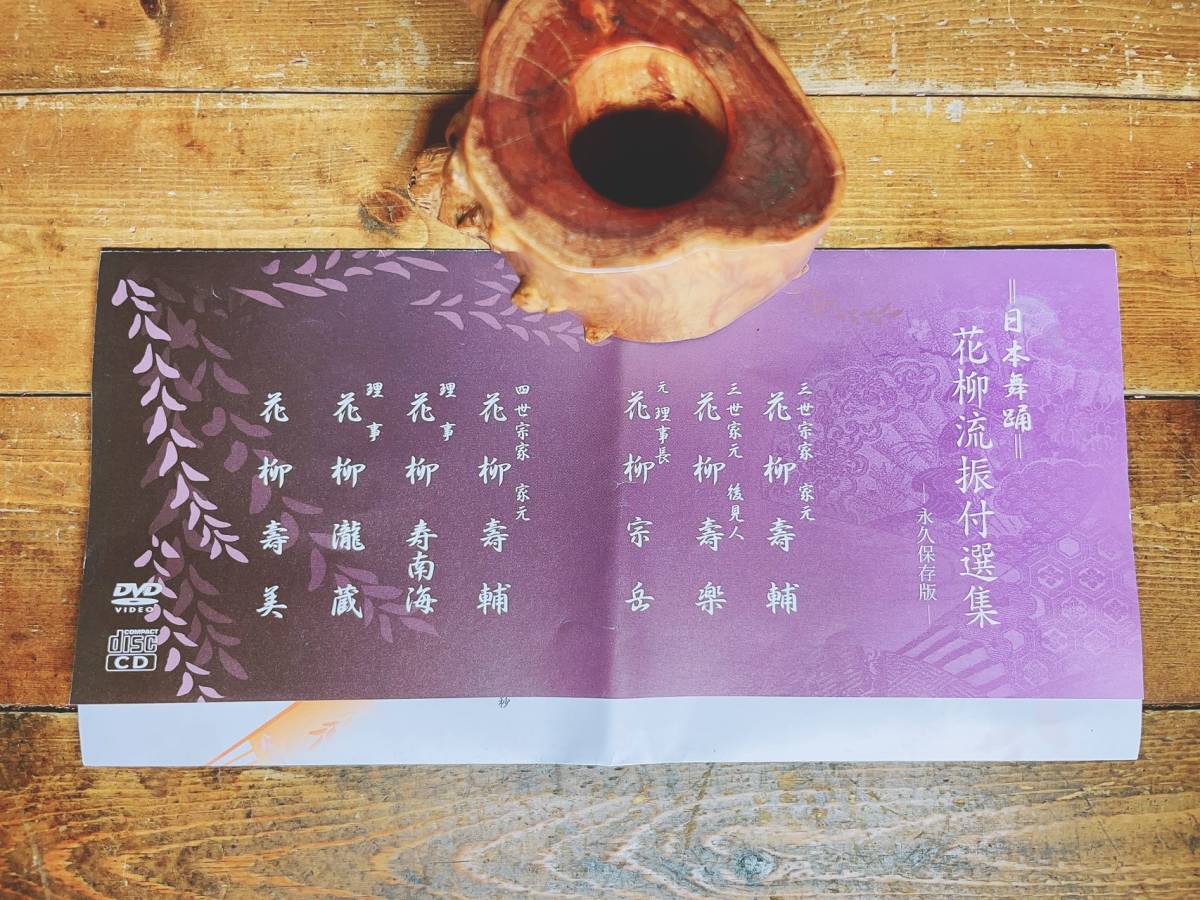 =日本舞踊=
花柳流振付選集
―永久保存版―
三世宗家 家元
花柳壽輔
三世家元 後見人
花柳壽楽
元 理事長
花柳宗岳
四世宗家 家元
花柳壽輔
理事
花柳寿南海
理事
花柳瀧蔵
花柳壽美
DVD
VIDEO
COMPACT
disc
CD
秒